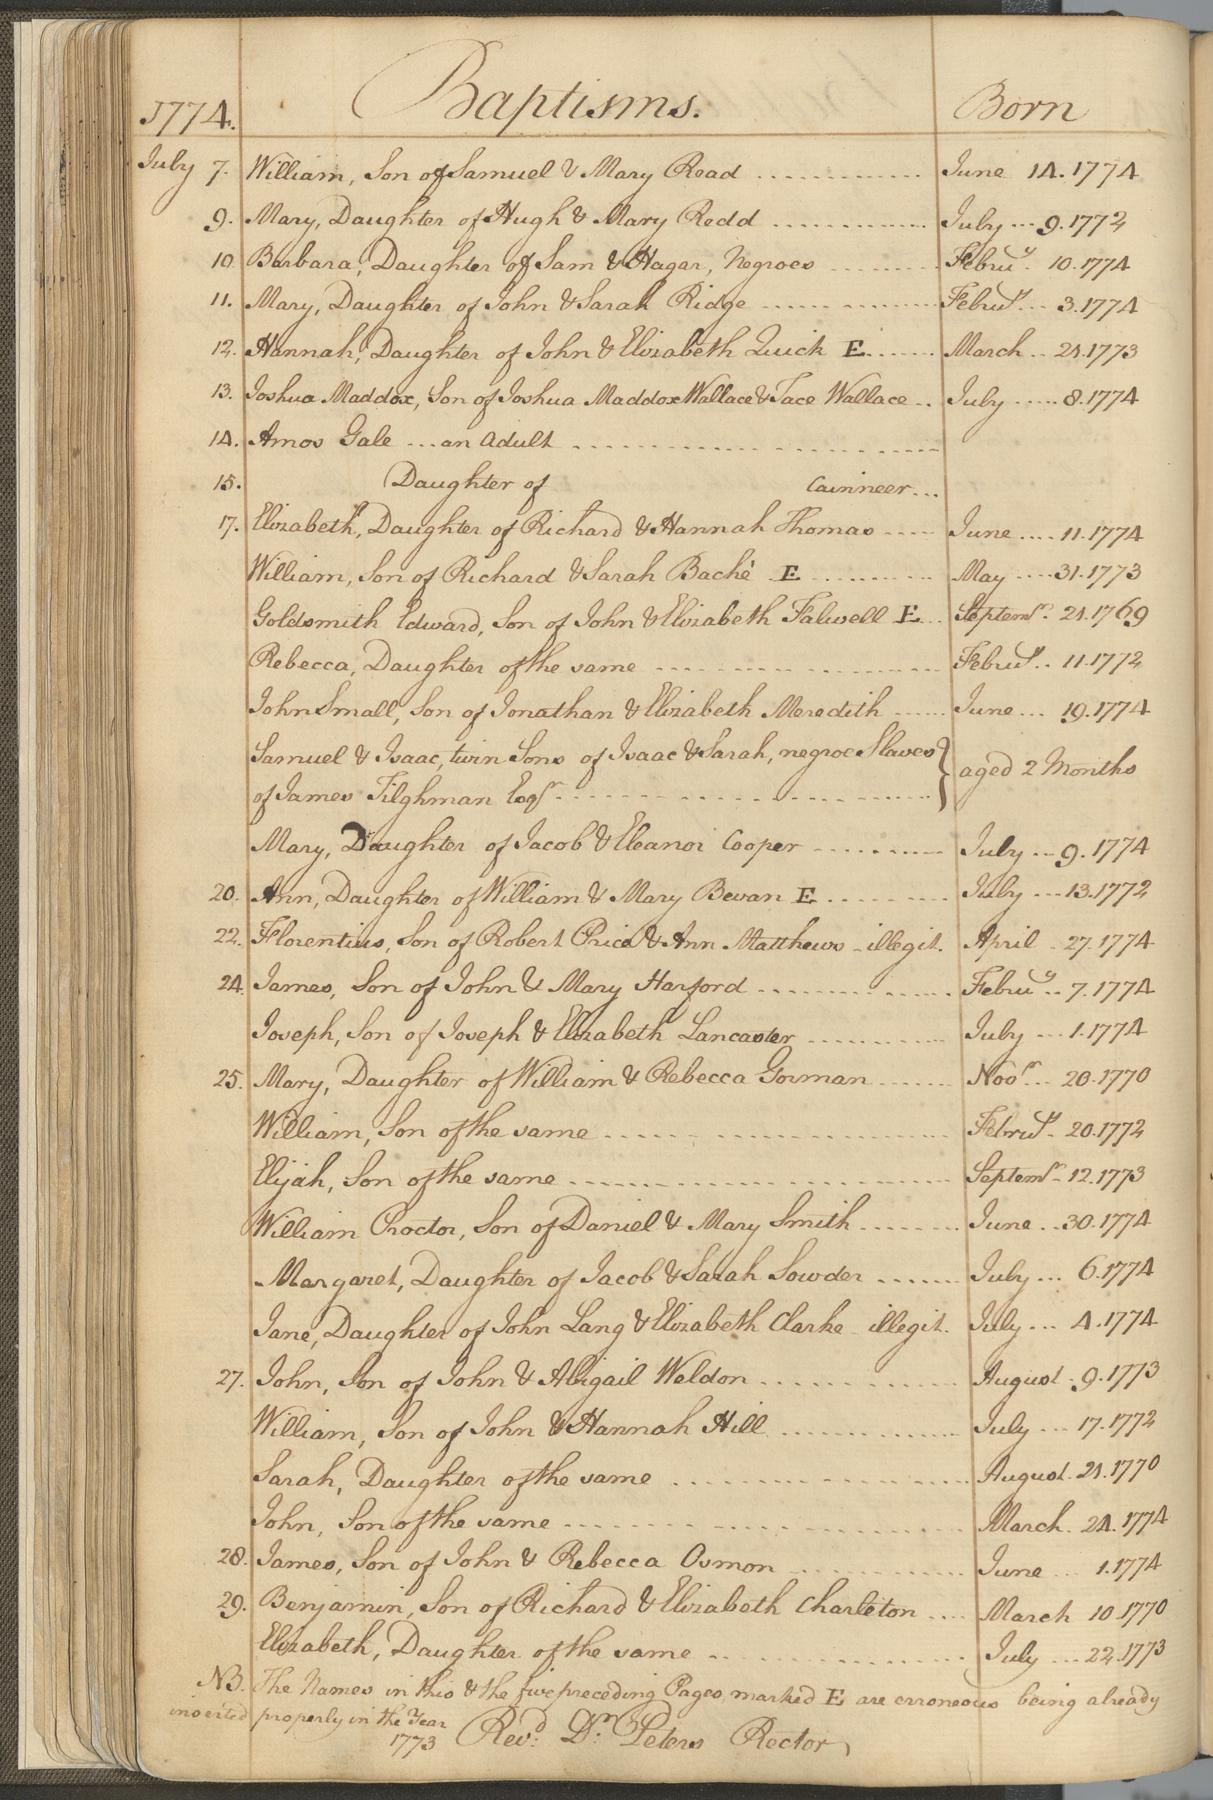 1774. Baptisms. Born
July 7. William, Son of Samuel & Mary Read June 14. 1774
9. Mary, Daughter of Hugh & Mary Redd July 9. 1772
10 Barbara, Daughter of Sam & Hagar, Negroes Febru.y 10. 1774
11. Mary, Daughter of John & Sarah Ridge Febru.y 3. 1774
12. Hannah, Daughter of John & Elizabeth Quick E March 21. 1773
13. Joshua Maddox, Son of Joshua Maddox Wallace & Tace Wallace July 8. 1774
14. Amos Gale ... an Adult
15. Daughter of Cainneer...
17. Elizabeth, Daughter of Richard & Hannah Thomas June 11. 1774
William, Son of Richard & Sarah Baché E May 31. 1773
Goldsmith Edward, Son of John & Elizabeth Falwell E Septem.r 21. 1769
Rebecca, Daughter of the same Febru.y 11. 1772
John Small, Son of Jonathan & Elizabeth Meredith June 19. 1774
Samuel & Isaac, twin Sons of Isaac & Sarah, negroe Slaves
of James Tilghman Esq.r } aged 2 Months
Mary, Daughter of Jacob & Eleanor Cooper July 9. 1774
20. Ann, Daughter of William & Mary Bevan E July 13. 1772
22. Florentius, Son of Robert Price & Ann Matthews - illegit. April 27. 1774
24. James, Son of John & Mary Harford Febru.y 7. 1774
Joseph, Son of Joseph & Elizabeth Lancaster July 1. 1774
25. Mary, Daughter of William & Rebecca Gorman Nov.r 20. 1770
William, Son of the same Febru.y 20. 1772
Elijah, Son of the same Septem.r 12. 1773
William Proctor, Son of Daniel & Mary Smith June 30. 1774
Margaret, Daughter of Jacob & Sarah Sowder July 6. 1774
Jane, Daughter of John Lang & Elizabeth Clarke illegit. July 4. 1774
27. John, Son of John & Abigail Weldon August 9. 1773
William, Son of John & Hannah Hill July 17. 1772
Sarah, Daughter of the same August 21. 1770
John, Son of the same March 24. 1774
28. James, Son of John & Rebecca Osmon June 1. 1774
29. Benjamin, Son of Richard & Elizabeth Charleton March 10 1770
Elizabeth, Daughter of the same July 22. 1773
NB. The Names in this & the five preceding Pages, marked E are erroneous being already
inserted properly in the Year
1773 Rev.d D.r Peters Rector